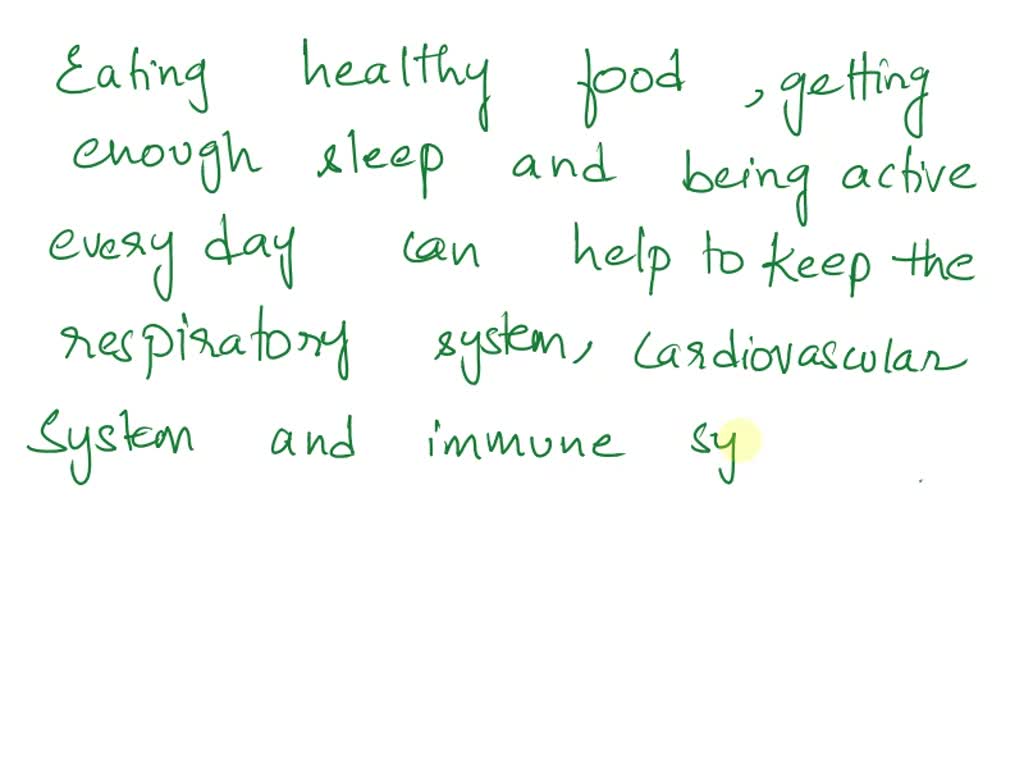 Eating healthy food, getting
enough sleep and being active
every day can help to keep the
respiratory system, cardiovascular
System and immune sy